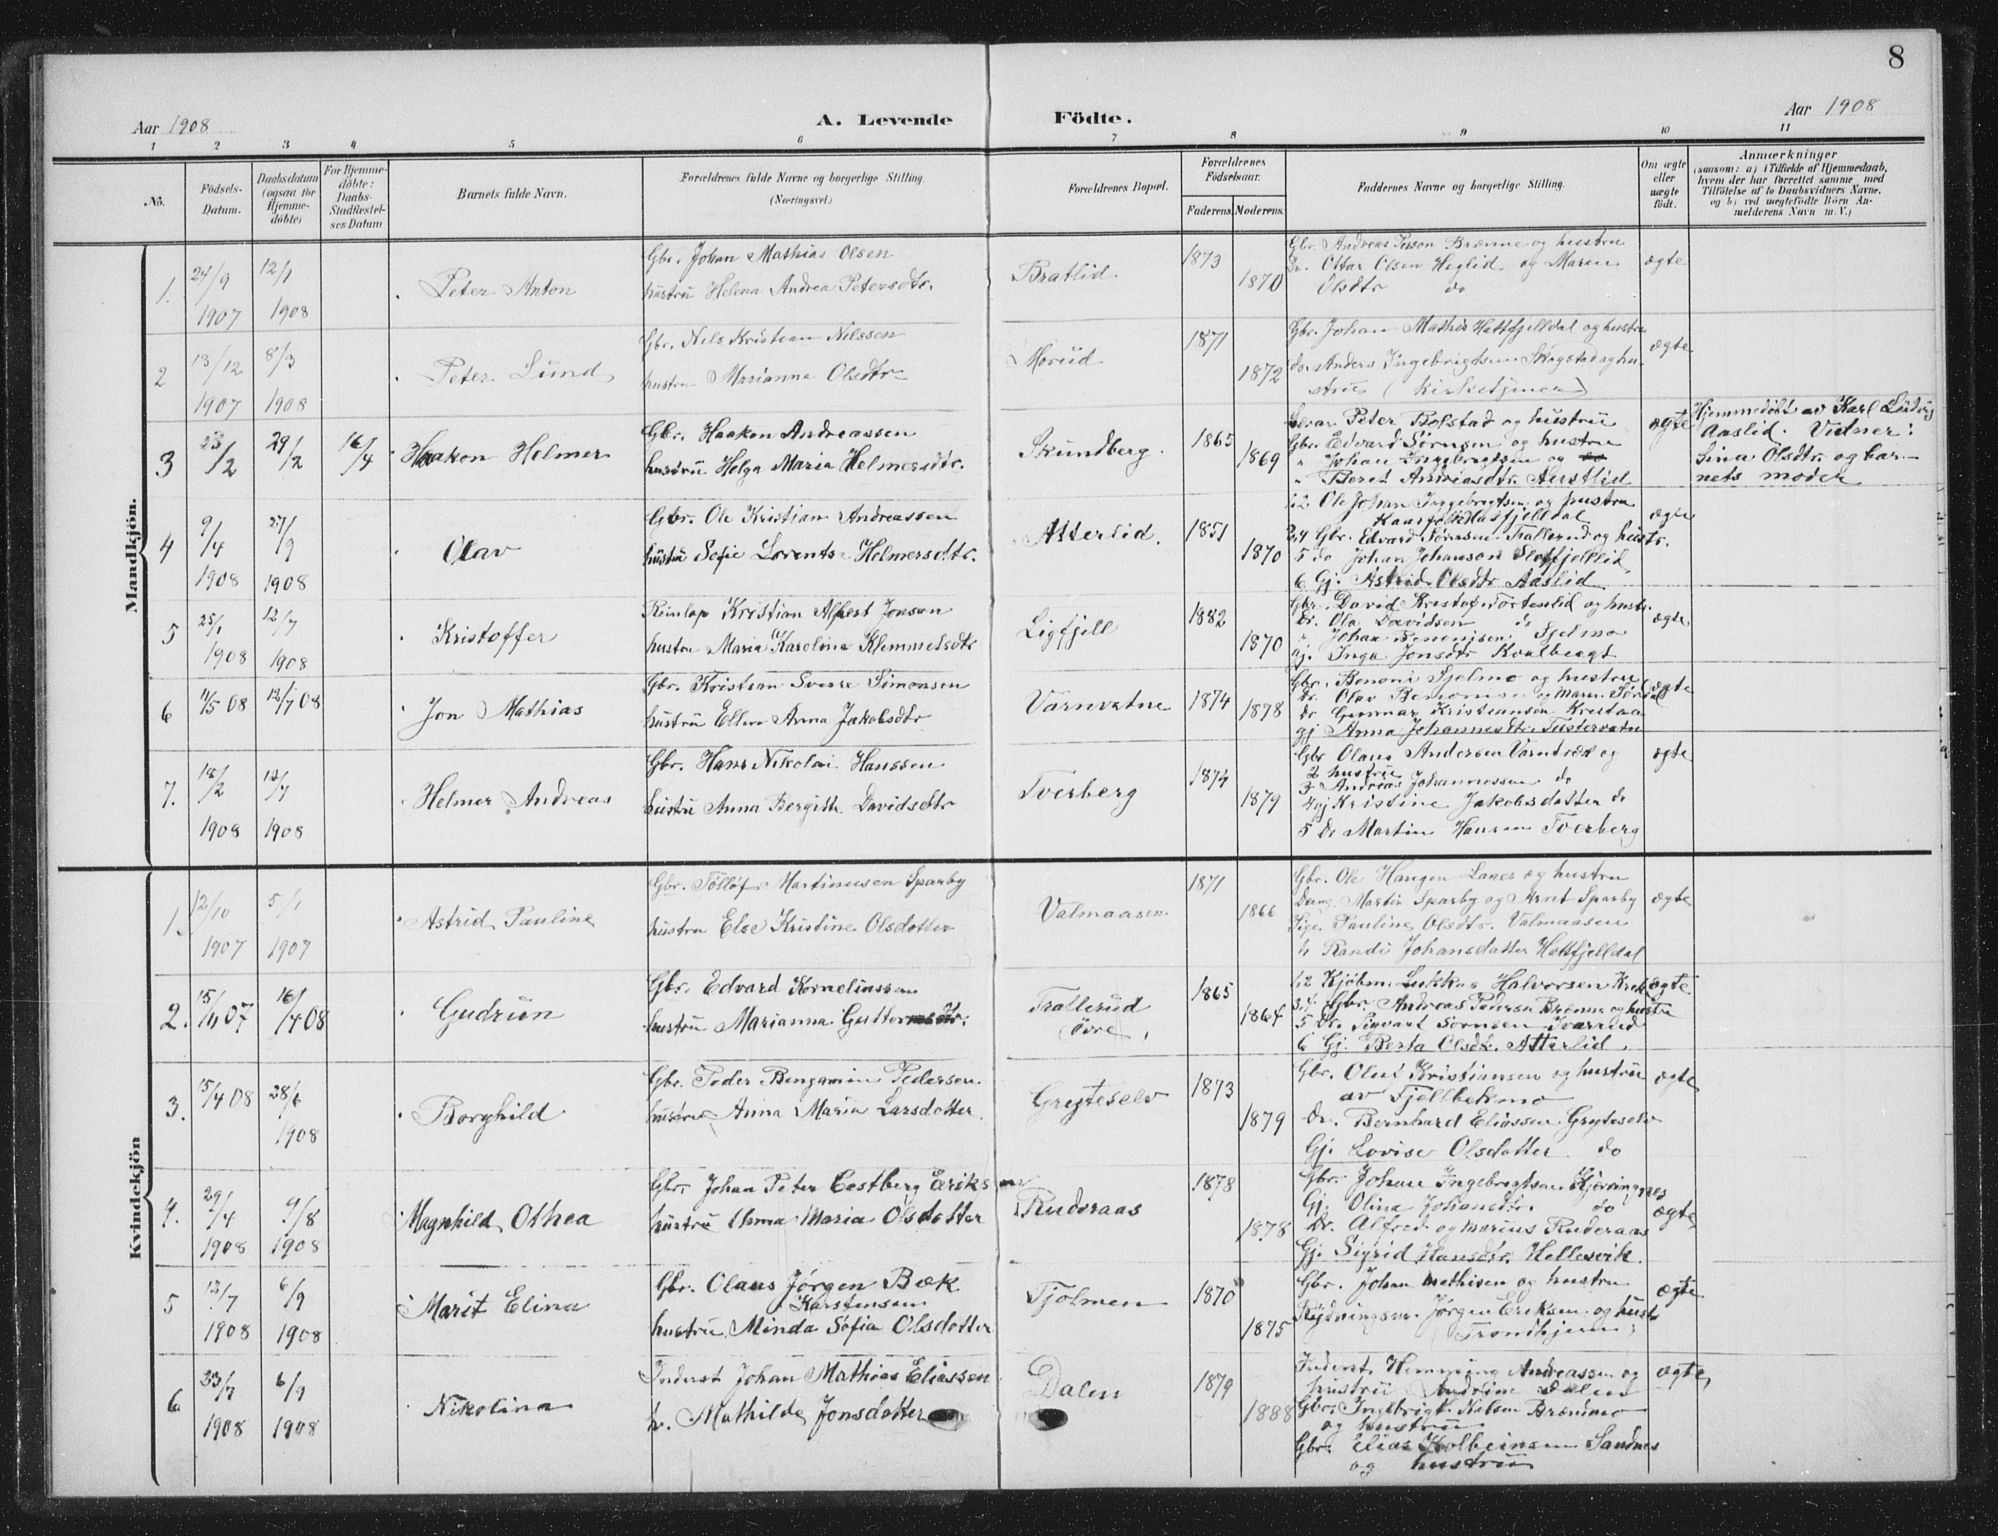 8
Aar 1908
A. Levende Födte.
Aar 1908
1 2 3 4 5 6 7 8 9 10 11
No.
Födsels-Datum.
Daabsdatum (ogsaa for Hjemme-döbte)
For Hjemme-döbte: Daabs-Stadfæstel-ses Datum
Barnets fulde Navn.
Forældrenes fulde Navne og borgerlige Stilling.
(Næringsvei.)
Forældrenes Bopæl.
Forældrenes Födselsaar.
Faderens. Moderens.
Faddernes Navne og borgerlige Stilling.
Om ægte eller uægte födt.
Anmærkninger
(saasom: a) i Tilfælde af Hjemmedaab,
hvem der har forrettet samme med
Tilföielse af to Daabsvidners Navne,
og b) ved uægtefödte Börn An-
melderens Navn m. V.)
Mandkjön.
1. 24/9 1907 12/1 1908 Peter Anton
Gbr. Johan Mathias Olsen
hustru Helena Andrea Petersdtr.
Bratlid 1873 1870
Gbr. Andreas Brenne og hustru
Dr. Ottar Olsen Heglid og Maren
Olsdtr do
ægte
2 13/12 1907 8/3 1908 Peter Lund
Gbr. Nels Kristian Nilssen
hustru Marianna Olsdtr
Moriid 1871 1872
Gbr. Johan Mathis Hattfjelldal og hustru
do Anders Ingebrigtsen Skogstad og hu-
stru (Kirketjener)
ægte
3 23/2 29/2 16/4 Haakon Helmer
Gbr. Haakon Andreassen
hustru Helga Maria Helmersdtr.
Skundberg. 1865 1869
Peter Rolstad og hustru
Gbr. Edvard Sörnsen og hustru
" Johan Ingebrigtsen og
" Beret Andreasdtr. Austlid
ægte
Hjemmedöbt av Karl Ludvig
Aaslid. Vidner:
Lina Olsdtr. og bar-
nets moder
4 9/4 1908 27/9 1908 Olav
Gbr. Ole Kristian Andreassen
hustru Sofie Lorents Helmersdtr.
Atterlid. 1851 1870
12 Ole Johan Ingebrigtsen og hustru
Hatfjelldal
3,4 Gbr. Edvard Sörnsen Trallerud og hustr.
5 do Johan Johanson Slotfjellid
6 Gj. Astrid Olsdtr Aaslid
ægte
5 25/1 1908 12/7 1908 Kristoffer
Kristian Albert Jonson
hustru Maria Karolina Klemmetsdtr
Ligfjell 1882 1870
Gbr. David Kristof. Forteslid og hustr.
Dr. Ola Davidsen "
" Johan Benonisen Sjelmo
gj. Inga Jonsdtr Kvalbergt
ægte
6 11/5 08 12/7 08 Jon Mathias
Gbr. Kristian Sverre Simonsen
hustru Ellen Anna Jakobsdtr
Varnvatne 1874 1878
Gbr. Benoni Sjelmo og hustru
Dr. Olav
Dr Gunnar Kristiansen
gj Anna Johannesdtr. Tustervatn
ægte
7. 18/2 1908 12/7 1908 Helmer Andreas
Gbr. Hans Nikolai Hanssen
hustru Anna Bergith. Davidsdtr
Tverberg 1874 1879
Gbr Olaus Andersen Varntræsk og
2 hustru
3 Andreas Johannessen do
4 gj Kristine Jakobsdatter do
5 Dr Martin Hansen Tverberg
ægte
Kvindekjön
1. 12/10 1907 5/1 1907 Astrid Pauline
Gbr. Tollöf Martinusen Sparby
hustru Else Kristine Olsdotter
Valmaasen 1871 1866
Gbr. Ole Haugen Lanes og hustru
Martin Sparby og Arnt Sparby
Pige. Pauline Olsdtr. Valmaasen
" Randi Johansdatter Hattfjelldal
ægte
2. 15/11 07 16/4 08 Gudrun
Gbr. Edvard Korneliussen
hustru Marianna Guttormsdtr.
Trallerud (övre) 1865 1864
12 Kjöbm. Lukkas Halvorsen
3.4 Gbr. Andreas Pedersen Brenne og hustru
5 Dr. Sigvart Sörnsen Ivarrud
6 Gj. Berta Olsdtr. Atterlid.
ægte
3. 15/4 08 28/6 1908 Borghild
Gbr. Peder Bengamin Pedersen.
hustru Anna Maria Larsdotter.
Grgteselv 1873 1879
Gbr. Oluf Kristiansen og hustru
av Fjellbekmo
Dr. Bernhard Eliassen Grgteselv
Gj. Lovise Olsdotter do
ægte
4. 29/4 1908 9/8 1908 Magnhild Othea
Gbr. Johan Peter Eastberg Eriksen
hustru Anna Maria Olsdotter
Rudsraas 1878 1878
Gbr. Johan Ingebrigtsen Kjerringnes
Gj. Olina Johansdtr. do
Dr. Alfred og Marius Ruderaas
Gj. Sigrid Hansdtr. Hellesvik.
ægte
5 13/7 1908 6/9 1908 Marit Elina
Gbr. Olaus Jörgen Bæk
Karstensen
hustru Minda Sofia Olsdotter
Fjolmen 1870 1875
Gbr. Johan Mathisen og hustru
Jörgen Eriksen og hust
Trondhjem
ægte
6 23/7 1908 6/9 1908 Nikolina
Inderst Johan Mathias Eliassen
h. Mathilde Jonsdotter
Dalen 1879 1888
Inderst. Hemming Andreassen og
hustru Andoline Dalen
Gbr. Ingebrigt Nielsen Brenmo
og hustru
Gbr. Elias Kolbeinsen Sandnes
og hustru
ægte